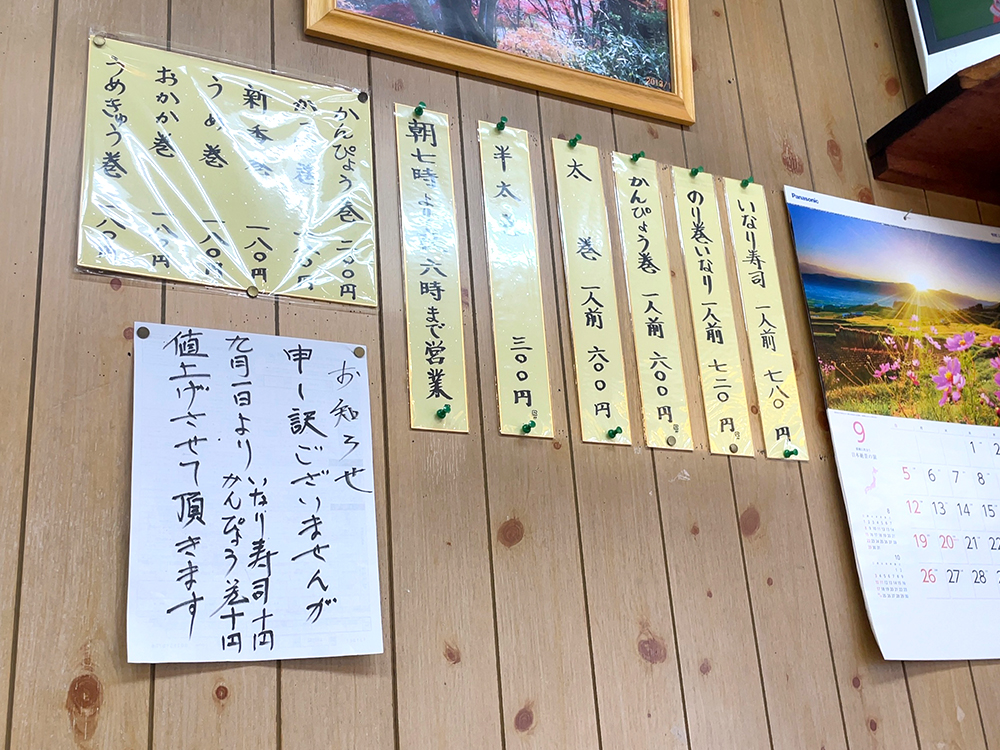 かんぴょう巻 二〇〇円
新香巻 一八〇円
うめ巻 一八〇円
おかか巻 一八〇円
うめきゅう巻 一八〇円
いなり寿司 一人前 七八〇円
のり巻いなり 一人前 七二〇円
かんぴょう巻 一人前 六〇〇円
太巻 一人前 六〇〇円
半太巻 三〇〇円
朝七時より 六時まで営業
お知らせ
申し訳ございませんが
九月一日より いなり寿司十円
かんぴょう巻十円
値上げさせて頂きます
Panasonic
9
1 2
5 6 7 8
12 13 14 15
19 20 21 22
26 27 28